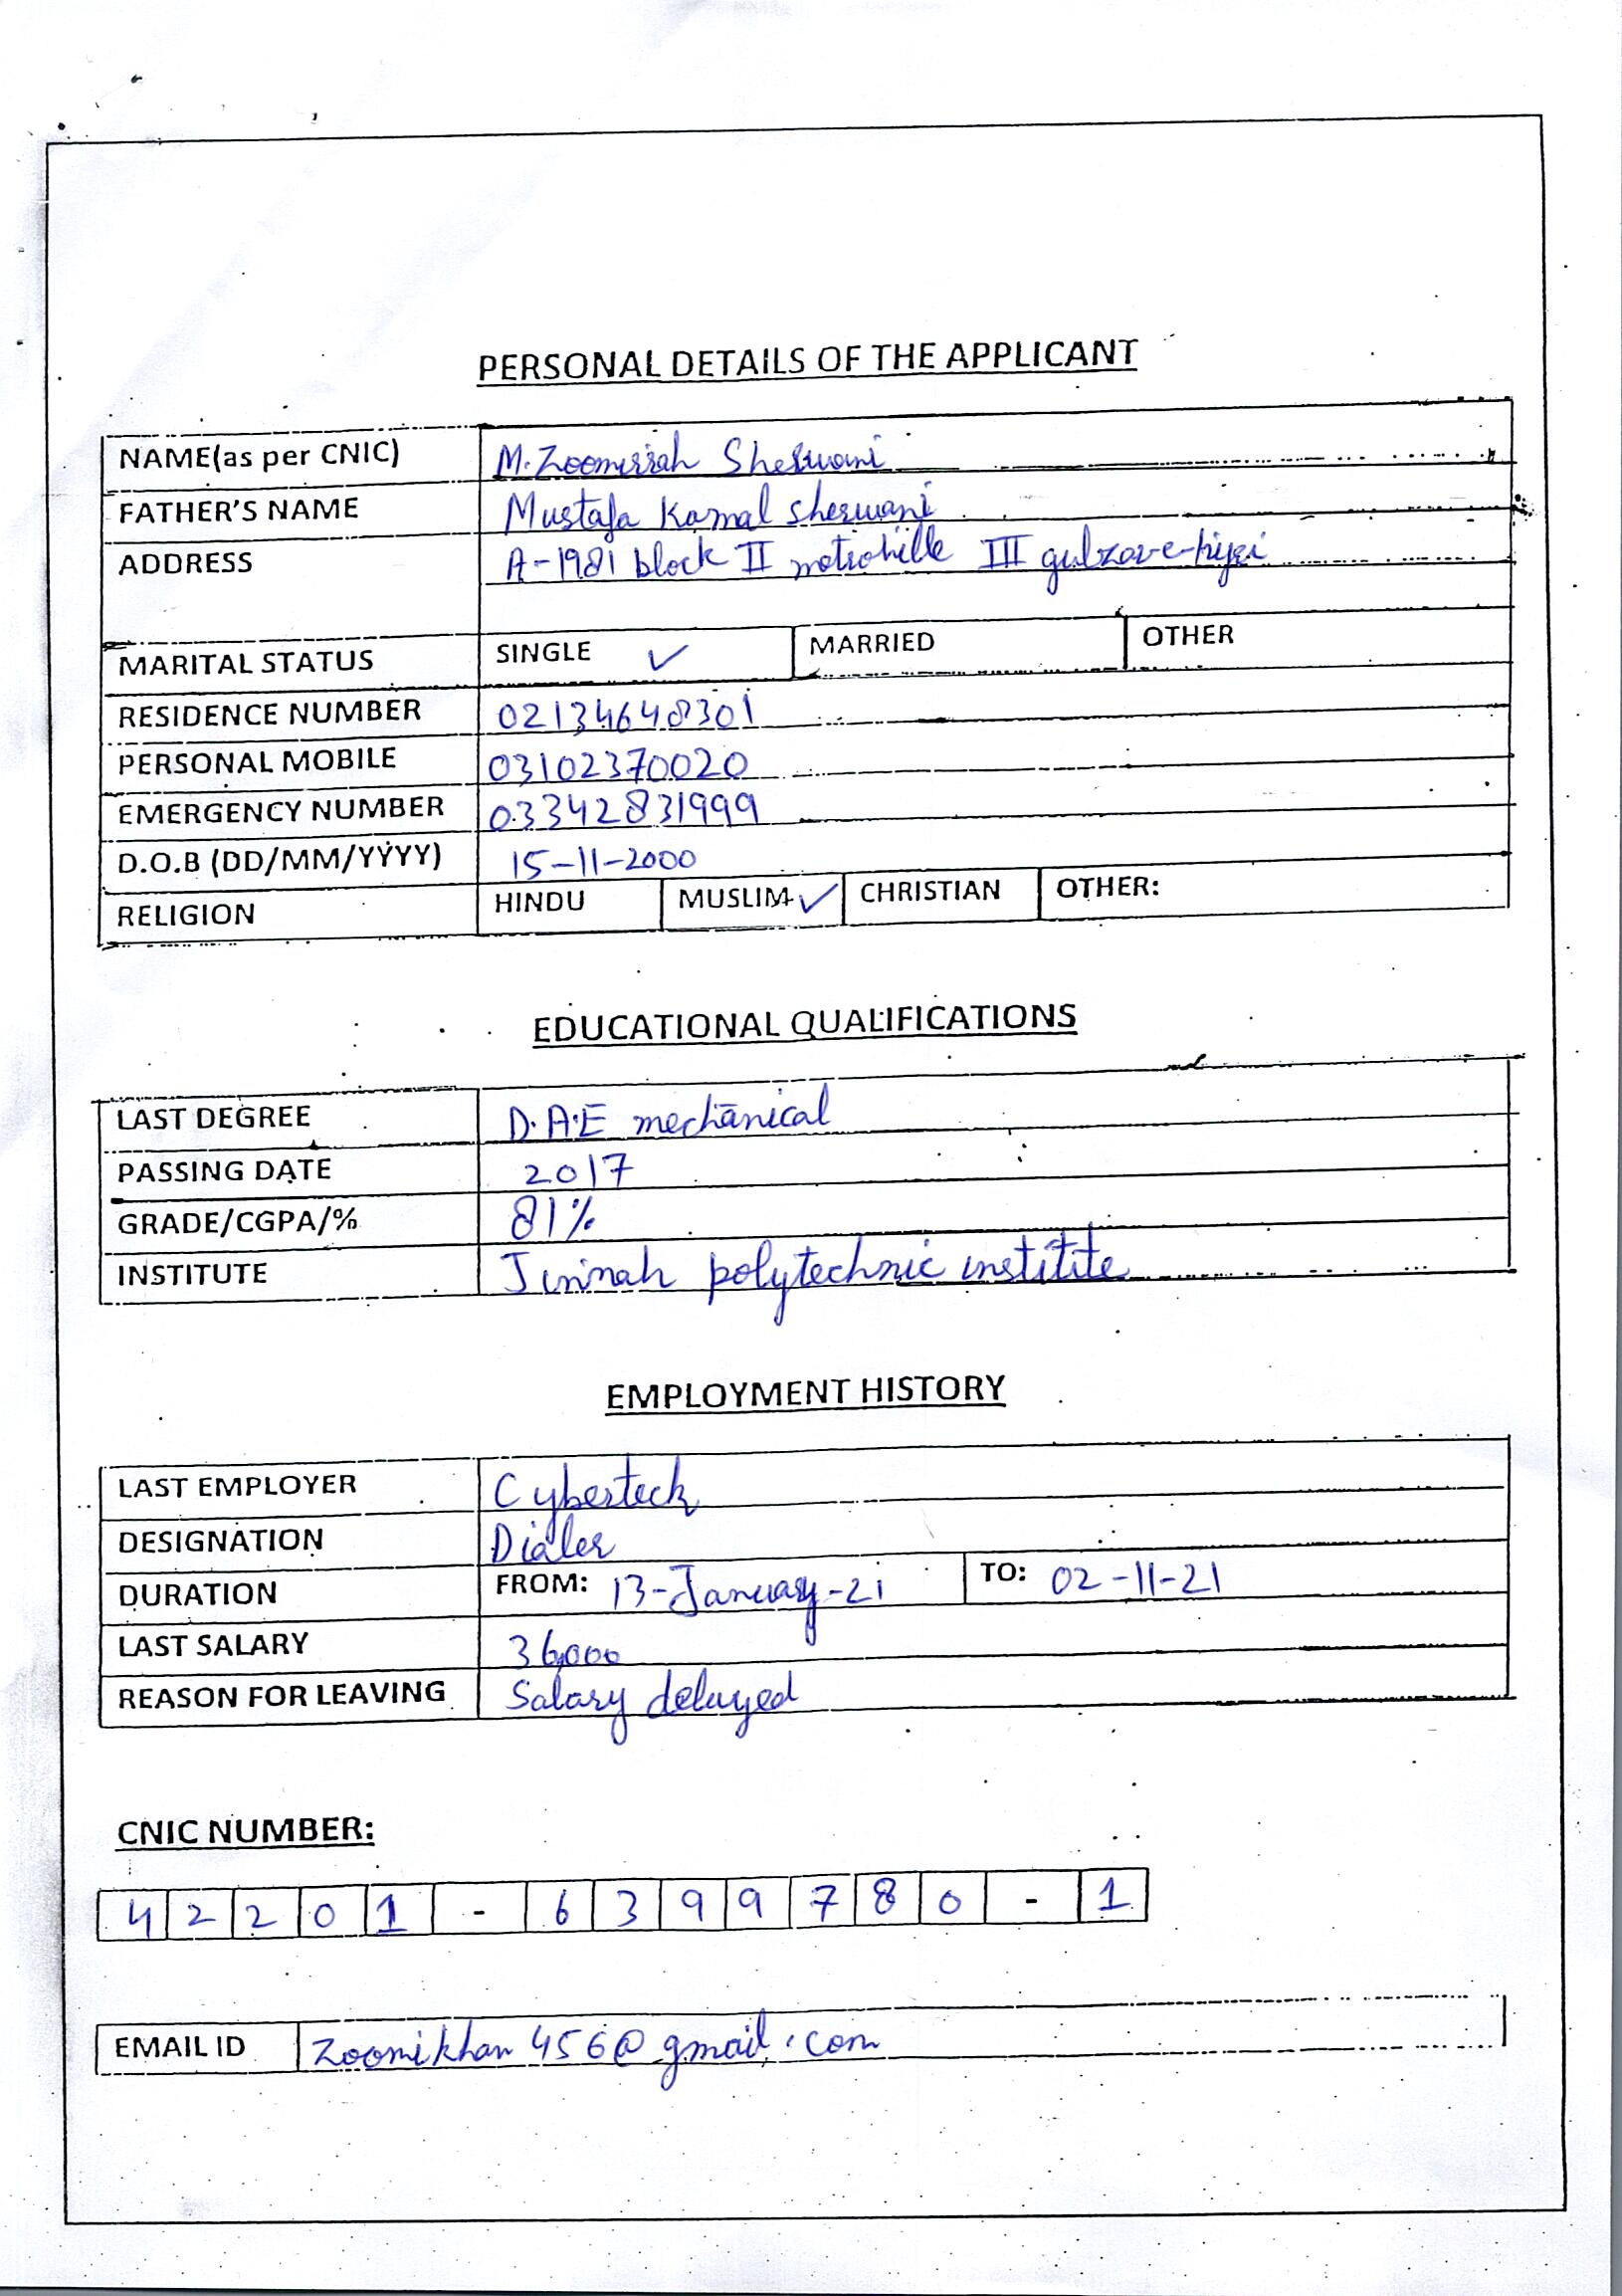 PERSONAL DETAILS OF THE APPLICANT
NAME(as per CNIC) M. Zoomirrah Sherwani
FATHER'S NAME Mustafa Kamal sherwani
ADDRESS A-1981 block II metroville III gulzar-e-hijri
MARITAL STATUS SINGLE ✓ MARRIED OTHER
RESIDENCE NUMBER 02134648301
PERSONAL MOBILE 03102370020
EMERGENCY NUMBER 03342831999
D.O.B (DD/MM/YYYY) 15-11-2000
RELIGION HINDU MUSLIM ✓ CHRISTIAN OTHER:
EDUCATIONAL QUALIFICATIONS
LAST DEGREE D.A.E mechanical
PASSING DATE 2017
GRADE/CGPA/% 81%
INSTITUTE Jinnah polytechnic institite
EMPLOYMENT HISTORY
LAST EMPLOYER Cyberteck
DESIGNATION Dialer
DURATION FROM: 13-January-21 TO: 02-11-21
LAST SALARY 36,000
REASON FOR LEAVING Salary delayed
CNIC NUMBER:
42201-6399780-1
EMAIL ID Zoomikhan456@gmail.com